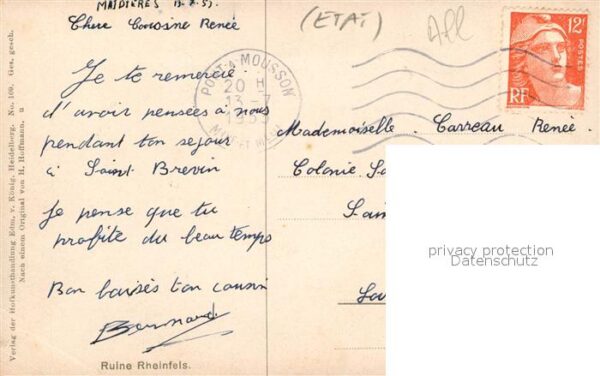 MAIDIÈRES 13.7.53
Chere Cousine Renée
Je te remercie
d'avoir pensées à nous
pendant ton sejour
à Saint Brevin
Je pense que tu
profite du beau temps
Bon baisés ton cousin
Bernard
Ruine Rheinfels.
Verlag der Hofkunsthandlung Edm. v. König, Heidelberg. No. 109. Ges. gesch.
Nach einem Original von H. Hoffmann.
(ETAT)
All
PONT-A-MOUSSON
20 H
13-7
1953
12F
POSTES
RF
Mademoiselle Carreau Renée.
Colonie
privacy protection
Datenschutz